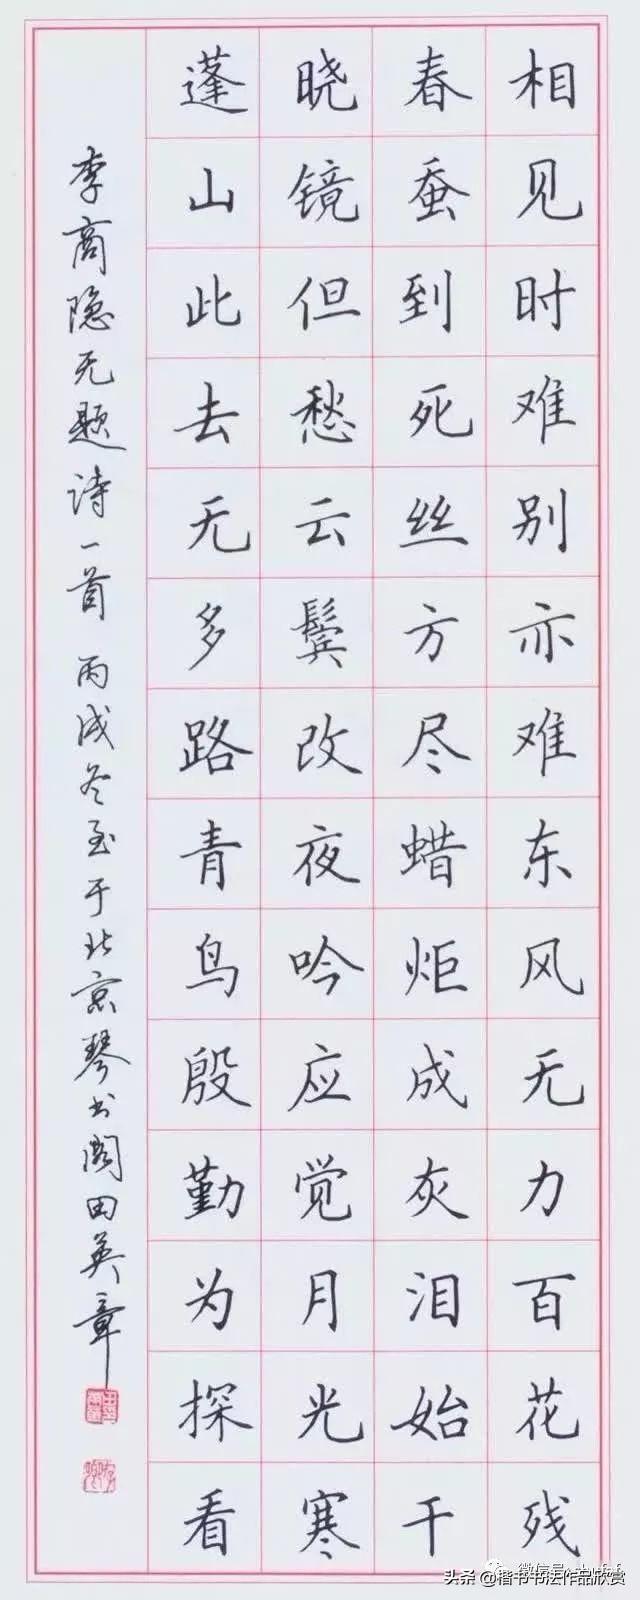 相见时难别亦难东风无力百花残
春蚕到死丝方尽蜡炬成灰泪始干
晓镜但愁云鬓改夜吟应觉月光寒
蓬山此去无多路青鸟殷勤为探看
李商隐无题诗一首 丙戌冬至于北京琴书阁田英章
微信号
头条 @楷书书法作品欣赏